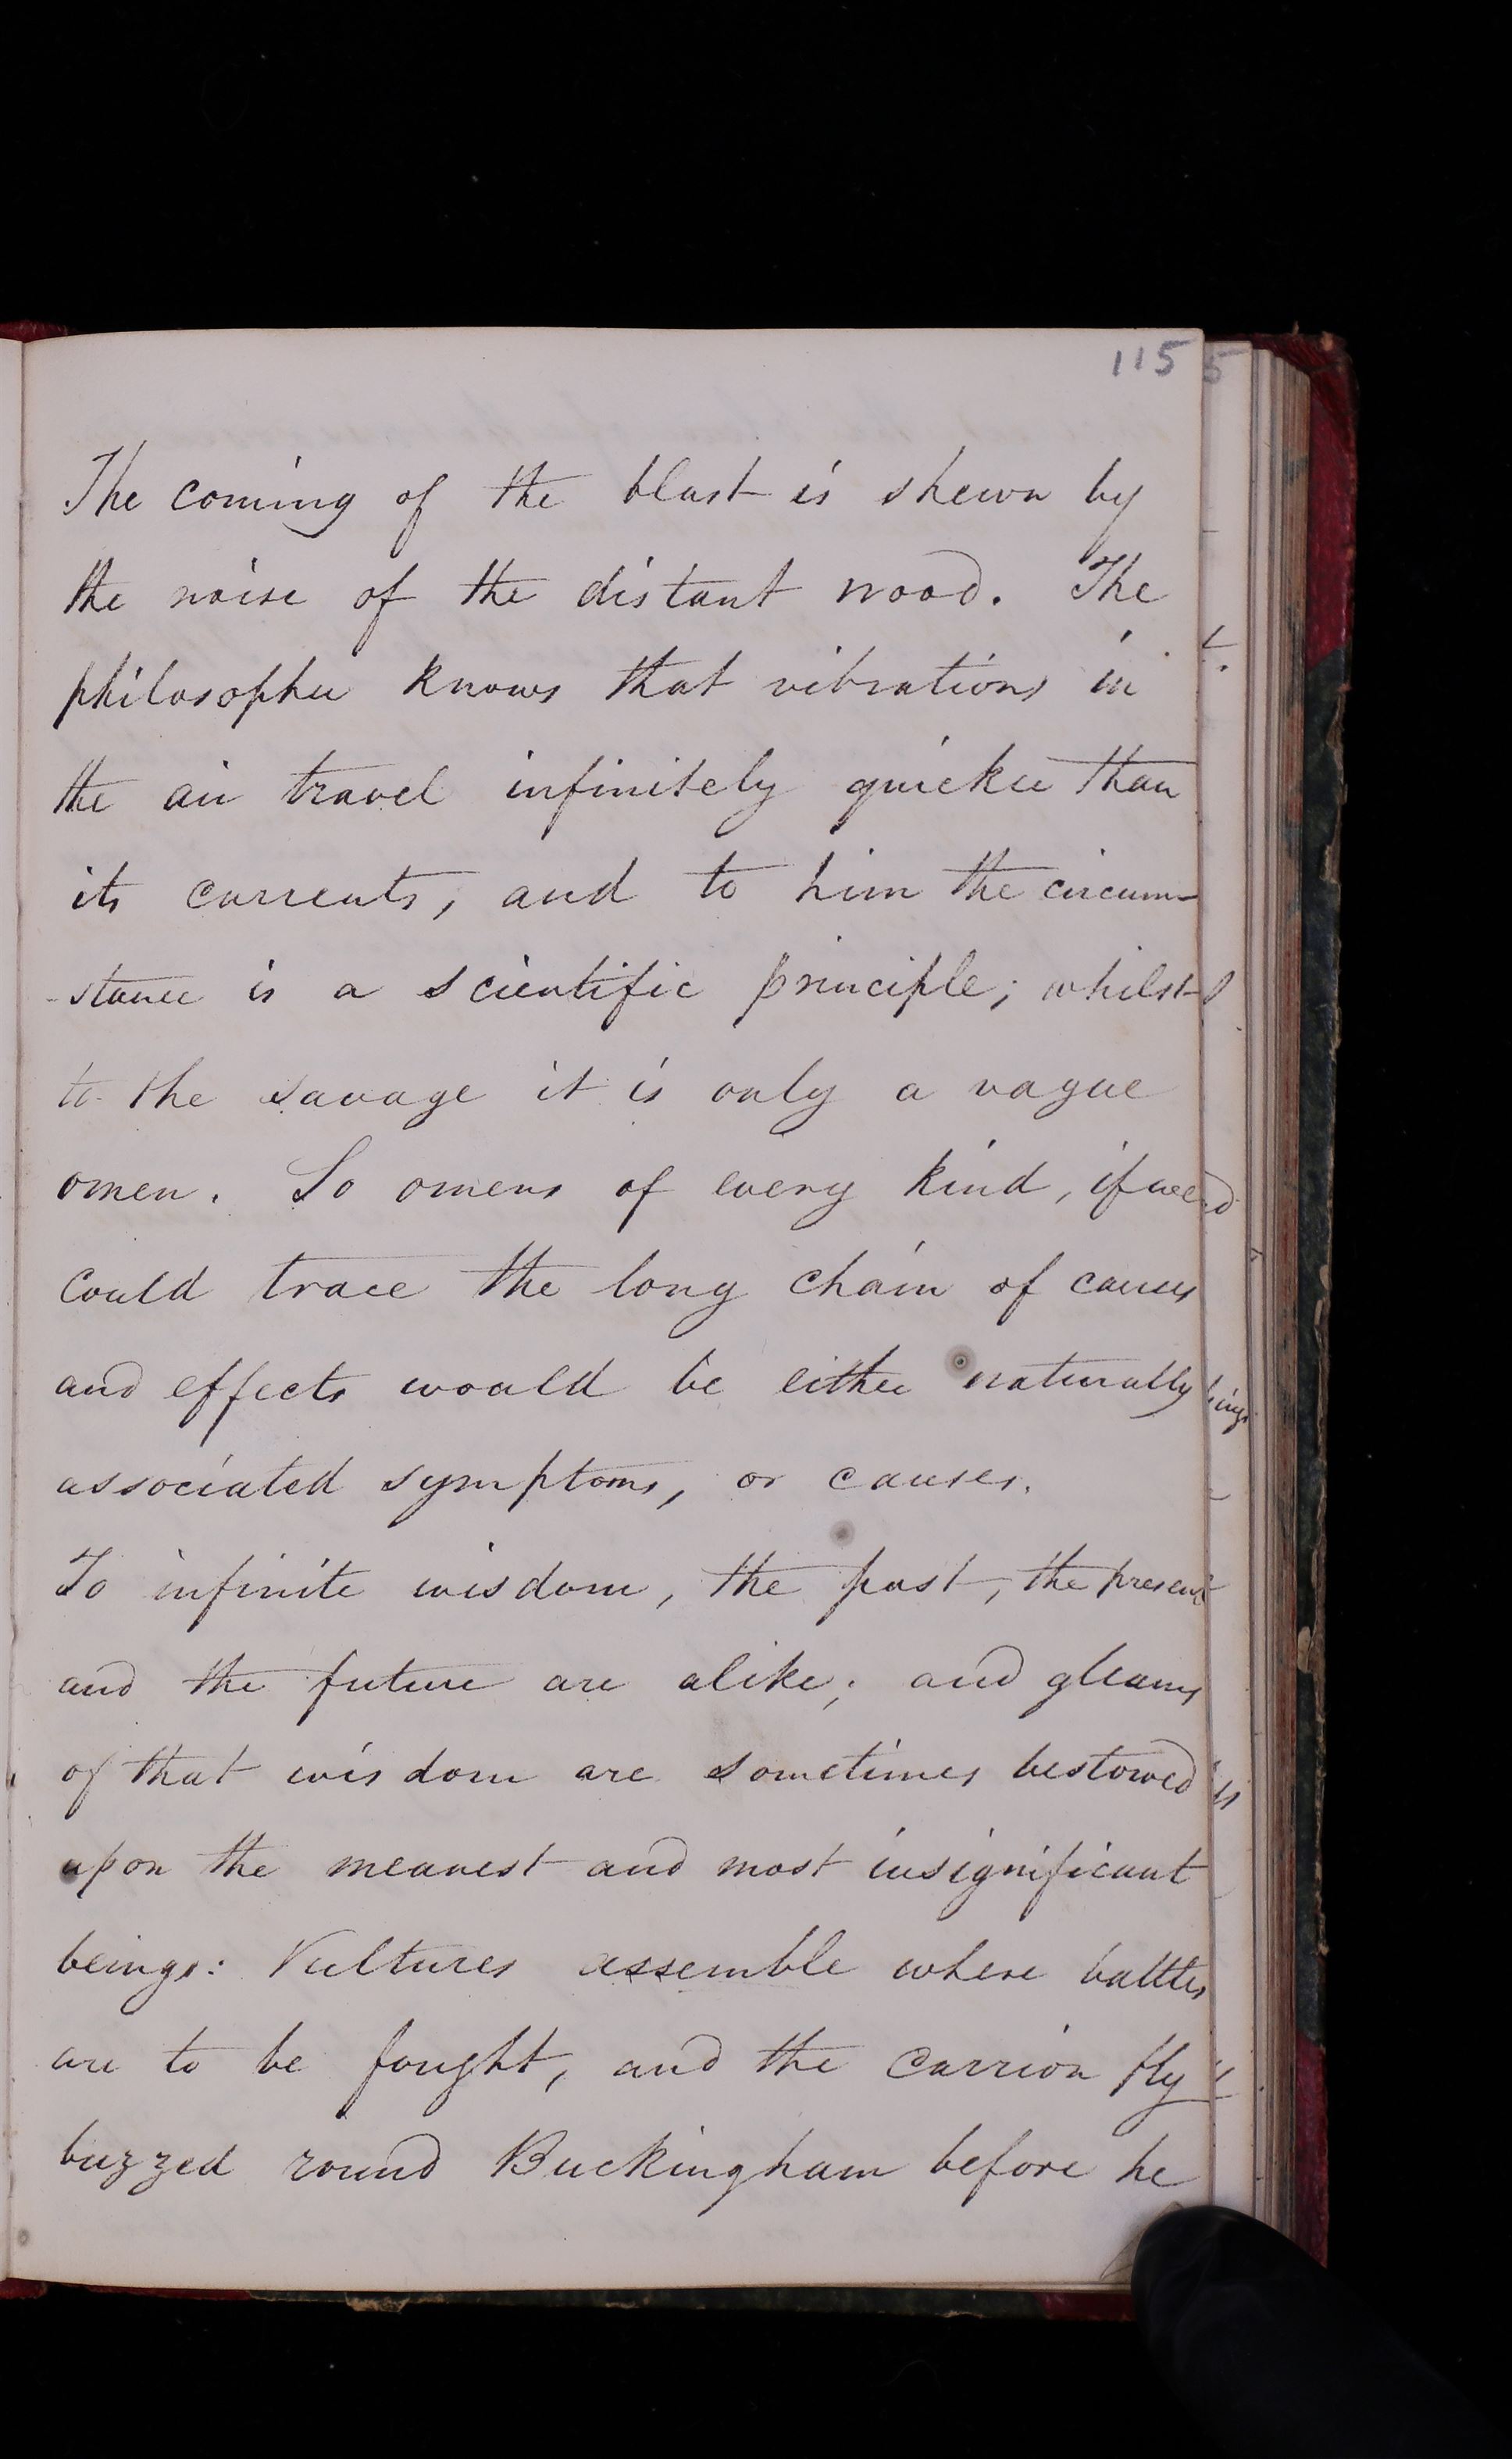 115
The coming of the blast is shewn by
the noise of the distant wood. The
philosopher knows that vibrations in
the air travel infinitely quicker than
its currents, and to him the circum-
-stance is a scientific principle; whilst
to the savage it is only a vague
omen. So omens of every kind, if we
could trace the long chain of causes
and effects would be either naturally
associated symptoms, or causes.
To infinite wisdom, the past, the present
and the future are alike; and gleams
of that wisdom are sometimes bestowed
upon the meanest and most insignificant
beings: Vultures assemble where battles
are to be fought, and the carrion fly
buzzed round Buckingham before he